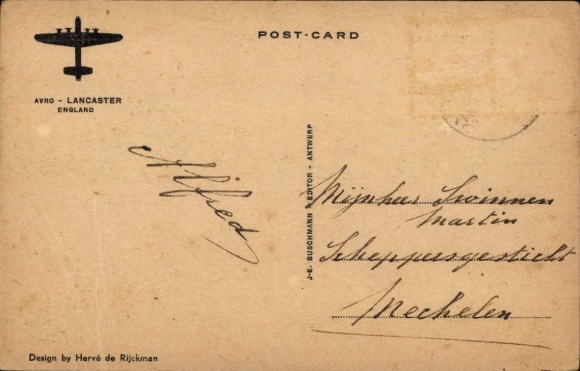 POST-CARD
AVRO - LANCASTER
ENGLAND
Alfred
J-E. BUSCHMANN EDITOR - ANTWERP
Mijnheer Swinnen
Martin
Scheppersgesticht
Mechelen
Design by Hervé de Rijckman